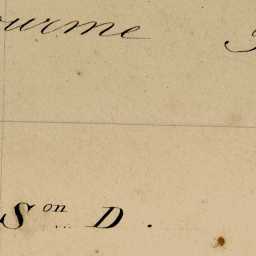 ourme
Son D.